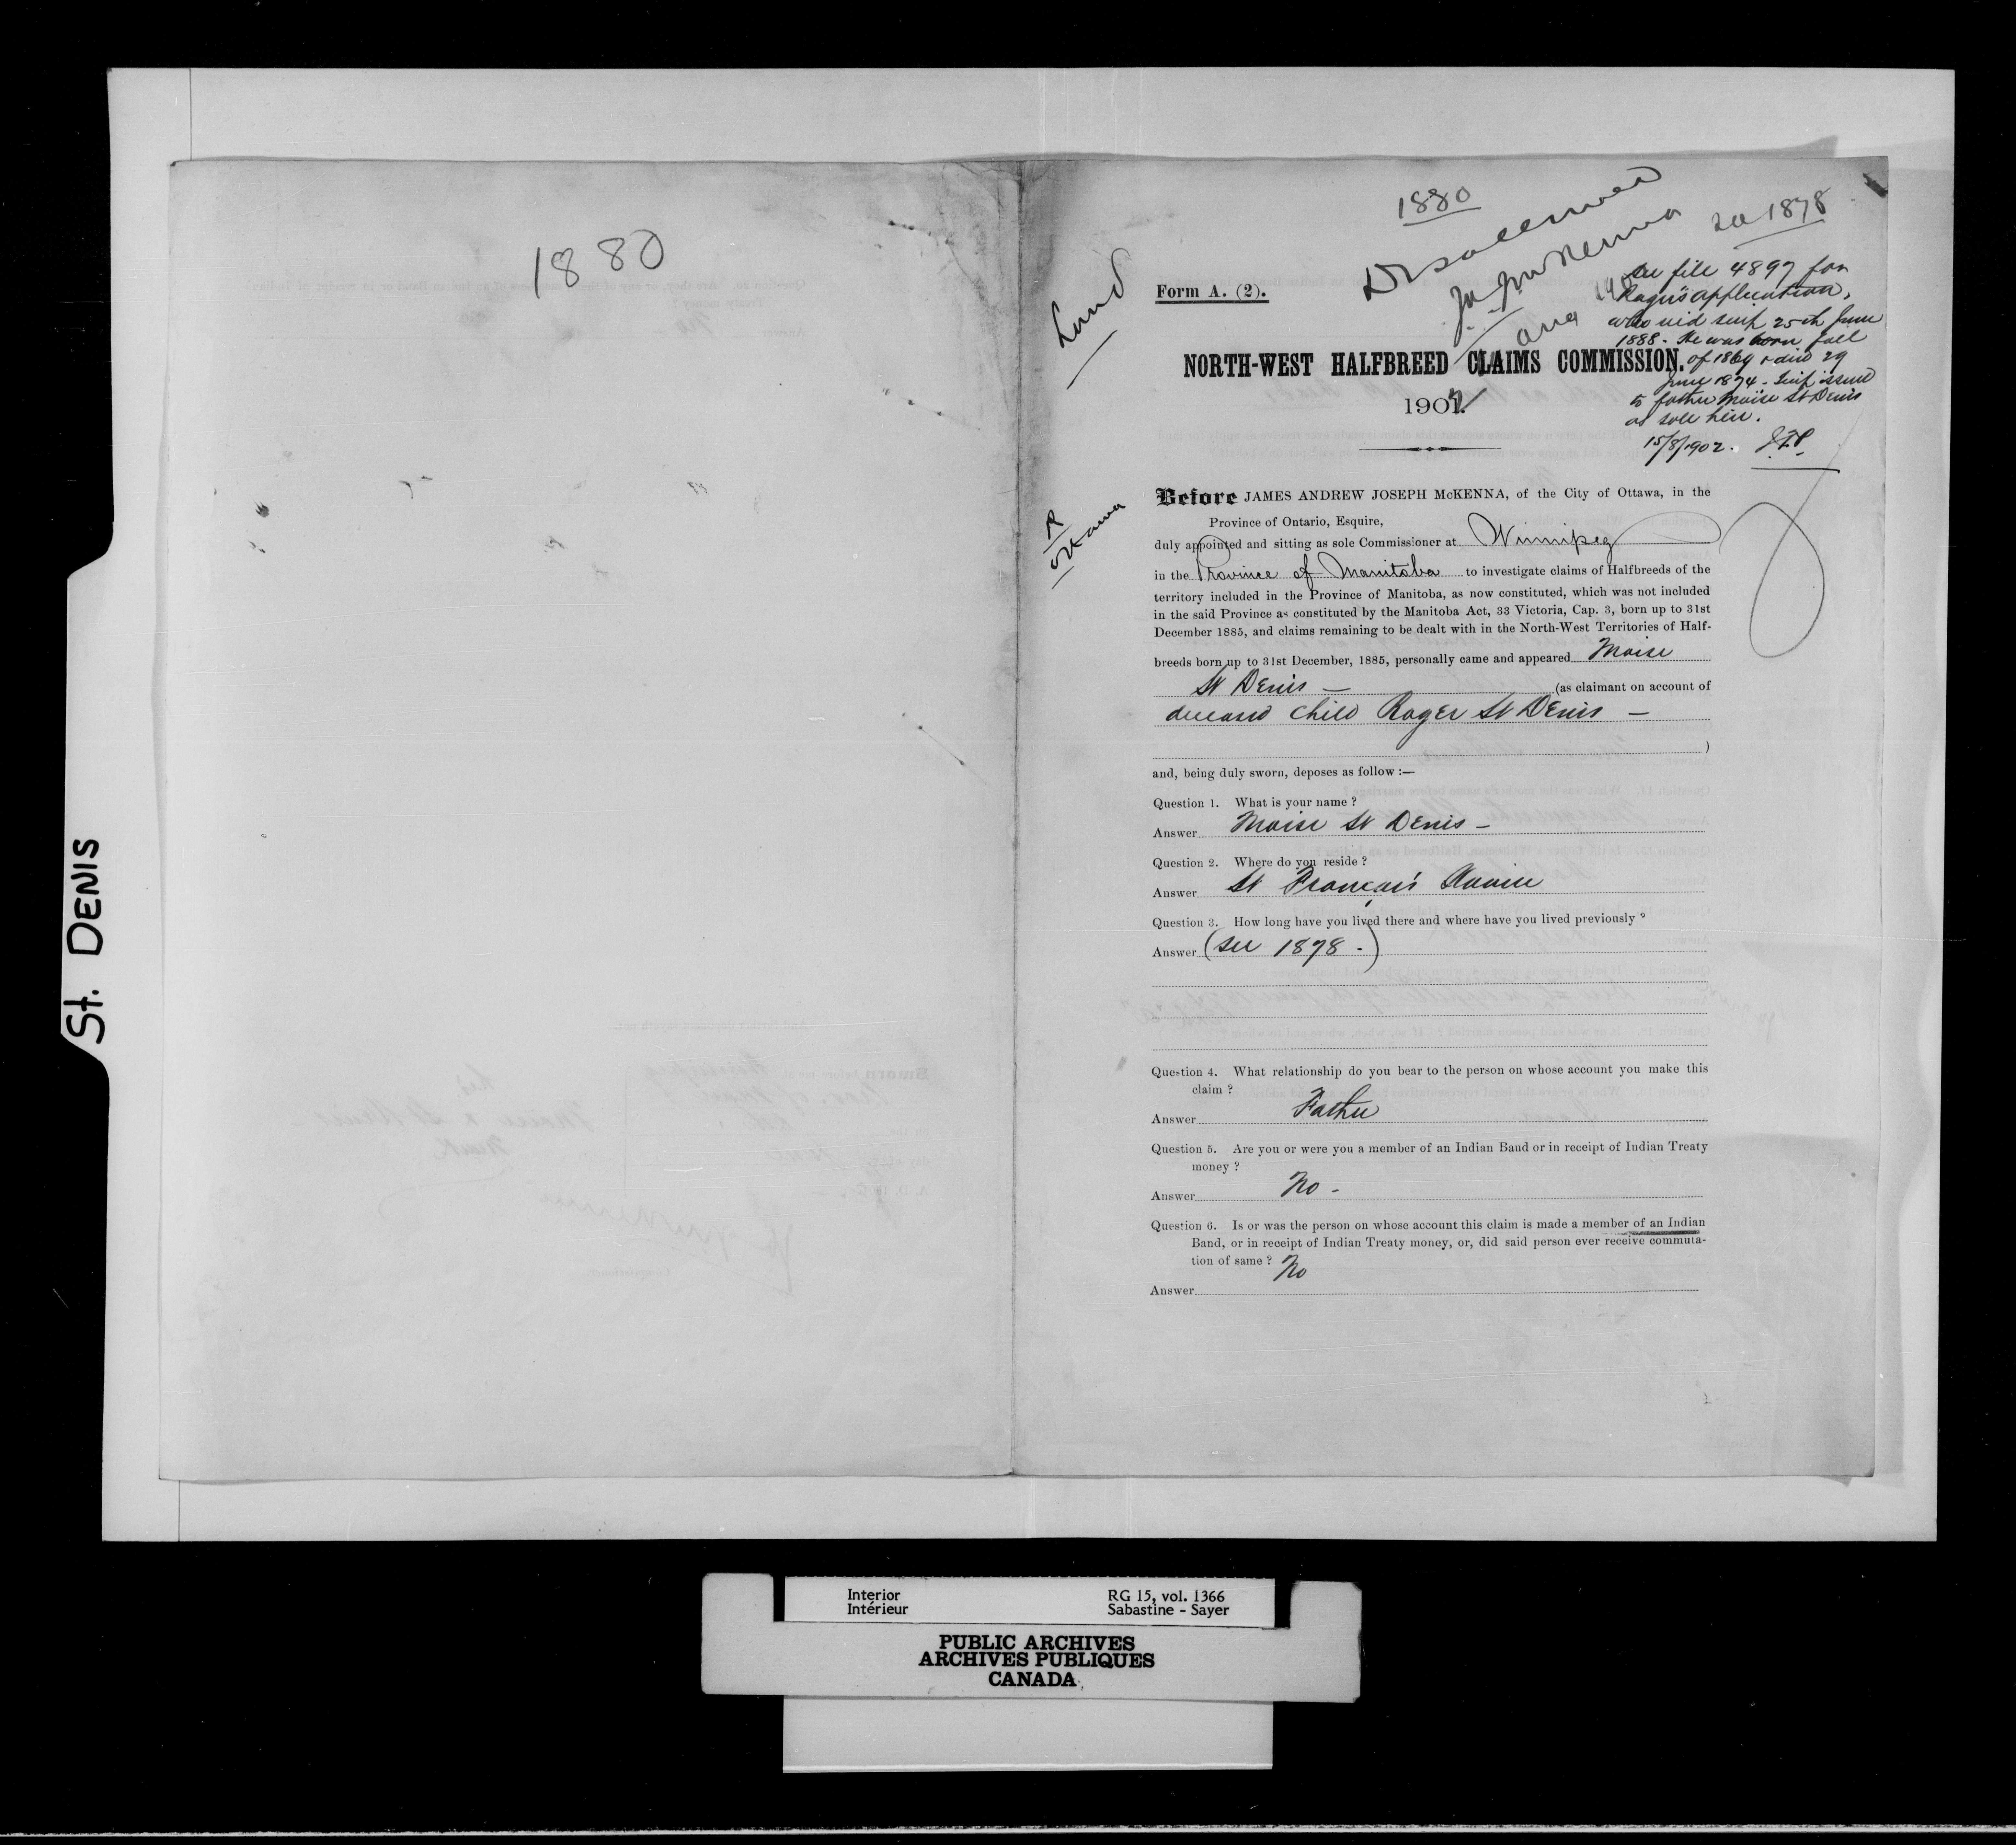 St. DENIS
1880
1880
Land
Disallowed
J.A.J. McKenna
Aug 1902
see 1878
Form A. (2).
See file 4897 for
Roger's application,
who rec'd scrip 25th June
1888. He was born fall
of 1869 & died 29
June 1874. Scrip issued
to father Moïse St Denis
as sole heir.
15/8/1902. J.F.P.
NORTH-WEST HALFBREED CLAIMS COMMISSION.
1902.
R
Ottawa
Before JAMES ANDREW JOSEPH McKENNA, of the City of Ottawa, in the
Province of Ontario, Esquire,
duly appointed and sitting as sole Commissioner at Winnipeg
in the Province of Manitoba to investigate claims of Halfbreeds of the
territory included in the Province of Manitoba, as now constituted, which was not included
in the said Province as constituted by the Manitoba Act, 33 Victoria, Cap. 3, born up to 31st
December 1885, and claims remaining to be dealt with in the North-West Territories of Half-
breeds born up to 31st December, 1885, personally came and appeared Moise
St Denis — (as claimant on account of
deceased child Roger St Denis —
)
and, being duly sworn, deposes as follow :—
Question 1. What is your name ?
Answer Moise St Denis —
Question 2. Where do you reside ?
Answer St François Xavier
Question 3. How long have you lived there and where have you lived previously ?
Answer (see 1878.)
Question 4. What relationship do you bear to the person on whose account you make this
claim ?
Answer Father
Question 5. Are you or were you a member of an Indian Band or in receipt of Indian Treaty
money ?
Answer No -
Question 6. Is or was the person on whose account this claim is made a member of an Indian
Band, or in receipt of Indian Treaty money, or, did said person ever receive commuta-
tion of same ?
Answer No
Interior
Intérieur
RG 15, vol. 1366
Sabastine - Sayer
PUBLIC ARCHIVES
ARCHIVES PUBLIQUES
CANADA